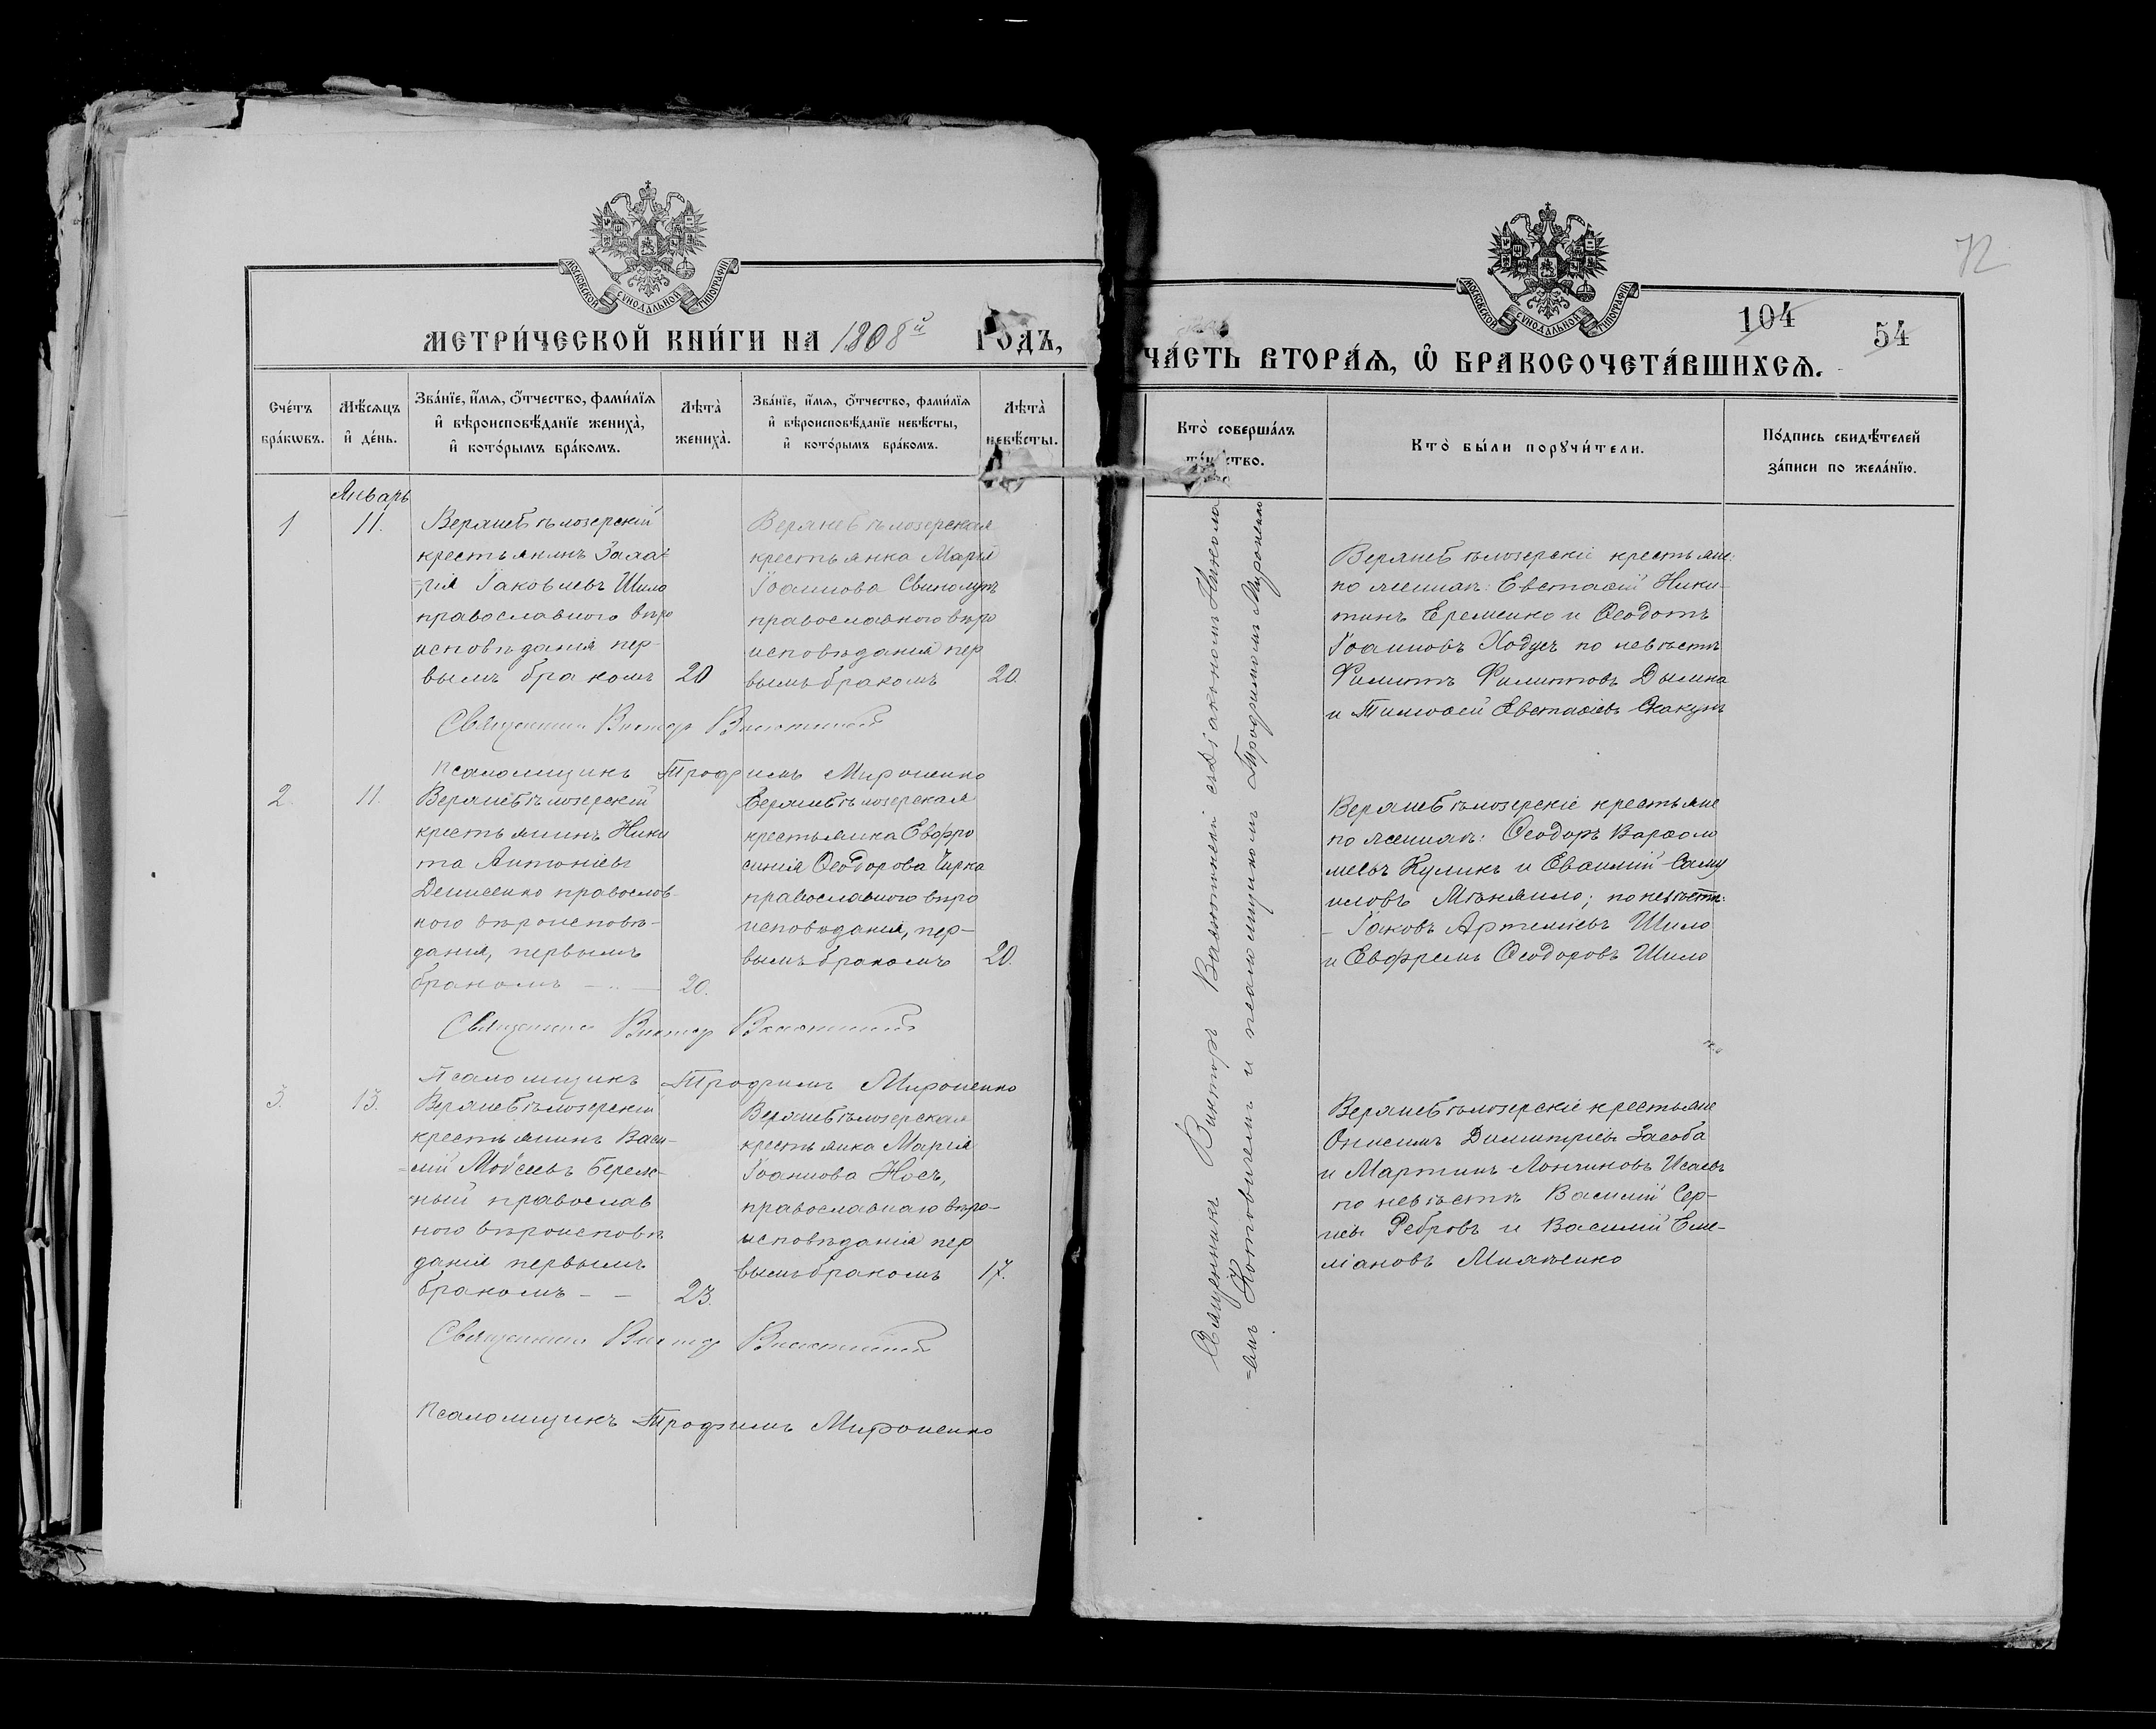 МОСКОВСКОЙ СѴНОДАЛЬНОЙ ТИПОГРАФІИ
МЕТРИ́ЧЕСКОЙ КНИ́ГИ НА 1908й ГОДЪ,
Сче́тъ бра́кѡвъ.
Мѣ́сѧцъ и҆ де́нь.
Зва́нїе, и҆́мѧ, ѻ҆́тчество, фами́лїѧ и҆ вѣроисповѣ́данїе жениха̀, и҆ кото́рымъ бра́комъ.
Лѣта̀ жениха̀.
Зва́нїе, и҆́мѧ, ѻ҆́тчество, фами́лїѧ и҆ вѣроисповѣ́данїе невѣ́сты, и҆ кото́рымъ бра́комъ.
Лѣта̀ невѣ́сты.
Январь
1
11.
Верхнебѣлозерскій
крестьянинъ Заха-
рія Іаковлевъ Шило
православного вѣро
исповѣданія пер-
вымъ бракомъ
20
Верхнебѣлозерская
крестьянка Марія
Іоаннова Свинолупъ
православного вѣро
исповѣданія пер
вымъ бракомъ
20.
Священникъ Викторъ
Псаломщикъ Трофимъ Мироненко
2.
11.
Верхнебѣлозерскій
крестьянинъ Ники
та Антоніевъ
Денисенко православ-
ного вѣроисповѣ-
данія, первымъ
бракомъ
20.
Верхнебѣлозерская
крестьянка Евфро
синія Ѳеодорова Чирка
православного вѣро
исповѣданія, пер-
вымъ бракомъ
20.
Священникъ Викторъ
Псаломщикъ Трофимъ Мироненко
3.
13.
Верхнебѣлозерскій
крестьянинъ Васи-
лій Моѵсеевъ Береж-
ный православ
ного вѣроисповѣ
данія первымъ
бракомъ - -
23.
Верхнебѣлозерская
крестьянка Марія
Іоаннова Носъ,
православнаго вѣро-
исповѣданія пер
вымъ бракомъ
17.
Священникъ Викторъ
Псаломщикъ Трофимъ Мироненко
72
МОСКОВСКОЙ СѴНОДАЛЬНОЙ ТИПОГРАФІИ
104
54
ЧА́СТЬ ВТОРА́Ѧ, Ѽ БРАКОСОЧЕТА́ВШИХСѦ.
Кто̀ соверша́лъ та́инство.
Кто̀ бы́ли порꙋчи́тели.
По́дпись свидѣ́телей за́писи по жела́нїю.
Священникъ Викторъ съ Діакономъ Никола
=емъ Котовичемъ и псаломщикомъ Трофимомъ Мироненко
Верхнебѣлозерскіе крестьяне:
по женихѣ: Евстафій Ники-
тинъ Еременко и Ѳеодотъ
Іоанновъ Ходусъ по невѣстѣ
Филиппъ Филипповъ Дымна
и Тимоѳей Евстафіевъ Скакунъ
Верхнебѣлозерскіе крестьяне
по женихѣ: Ѳеодоръ Варѳоло
меевъ Куликъ и Евѳимій Саму
иловъ Мѣняйло; по невѣстѣ:
- Іаковъ Артеміевъ Шило
и Евфремъ Ѳеодоровъ Шило
Верхнебѣлозерскіе крестьяне
Онисимъ Димитріевъ Засоба
и Мартинъ Лонгиновъ Исаевъ
по невѣстѣ Василій Сер-
гіевъ Ребровъ и Василій Еме-
ліановъ Михненко